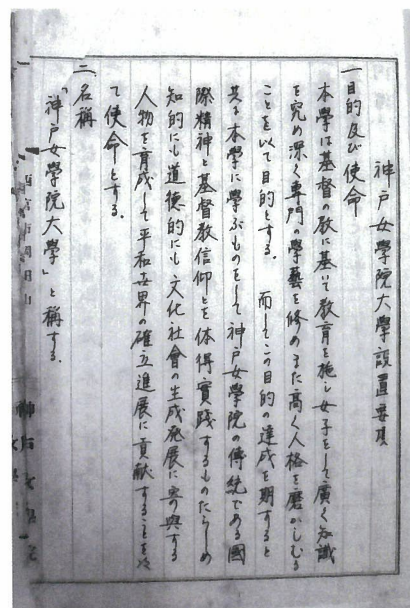 神戸女学院大學設置要項
一目的及び使命
本學は基督の教に基いて教育を施し女子をして廣く知識
を究め深く専門の學藝を修めるた高く人格を磨かしむる
ことを以て目的とする。而してこの目的の達成を期すると
共に本學に学ぶものをして神戸女學院の傳統である國
際精神と基督教信仰とを体得實践するものたらしめ
知的にも道徳的にも文化社會の生成発展に寄與する
人物を育成して平和世界の確立進展に貢献することを以
て使命とする。
二、名稱
「神戸女學院大學」と稱する。